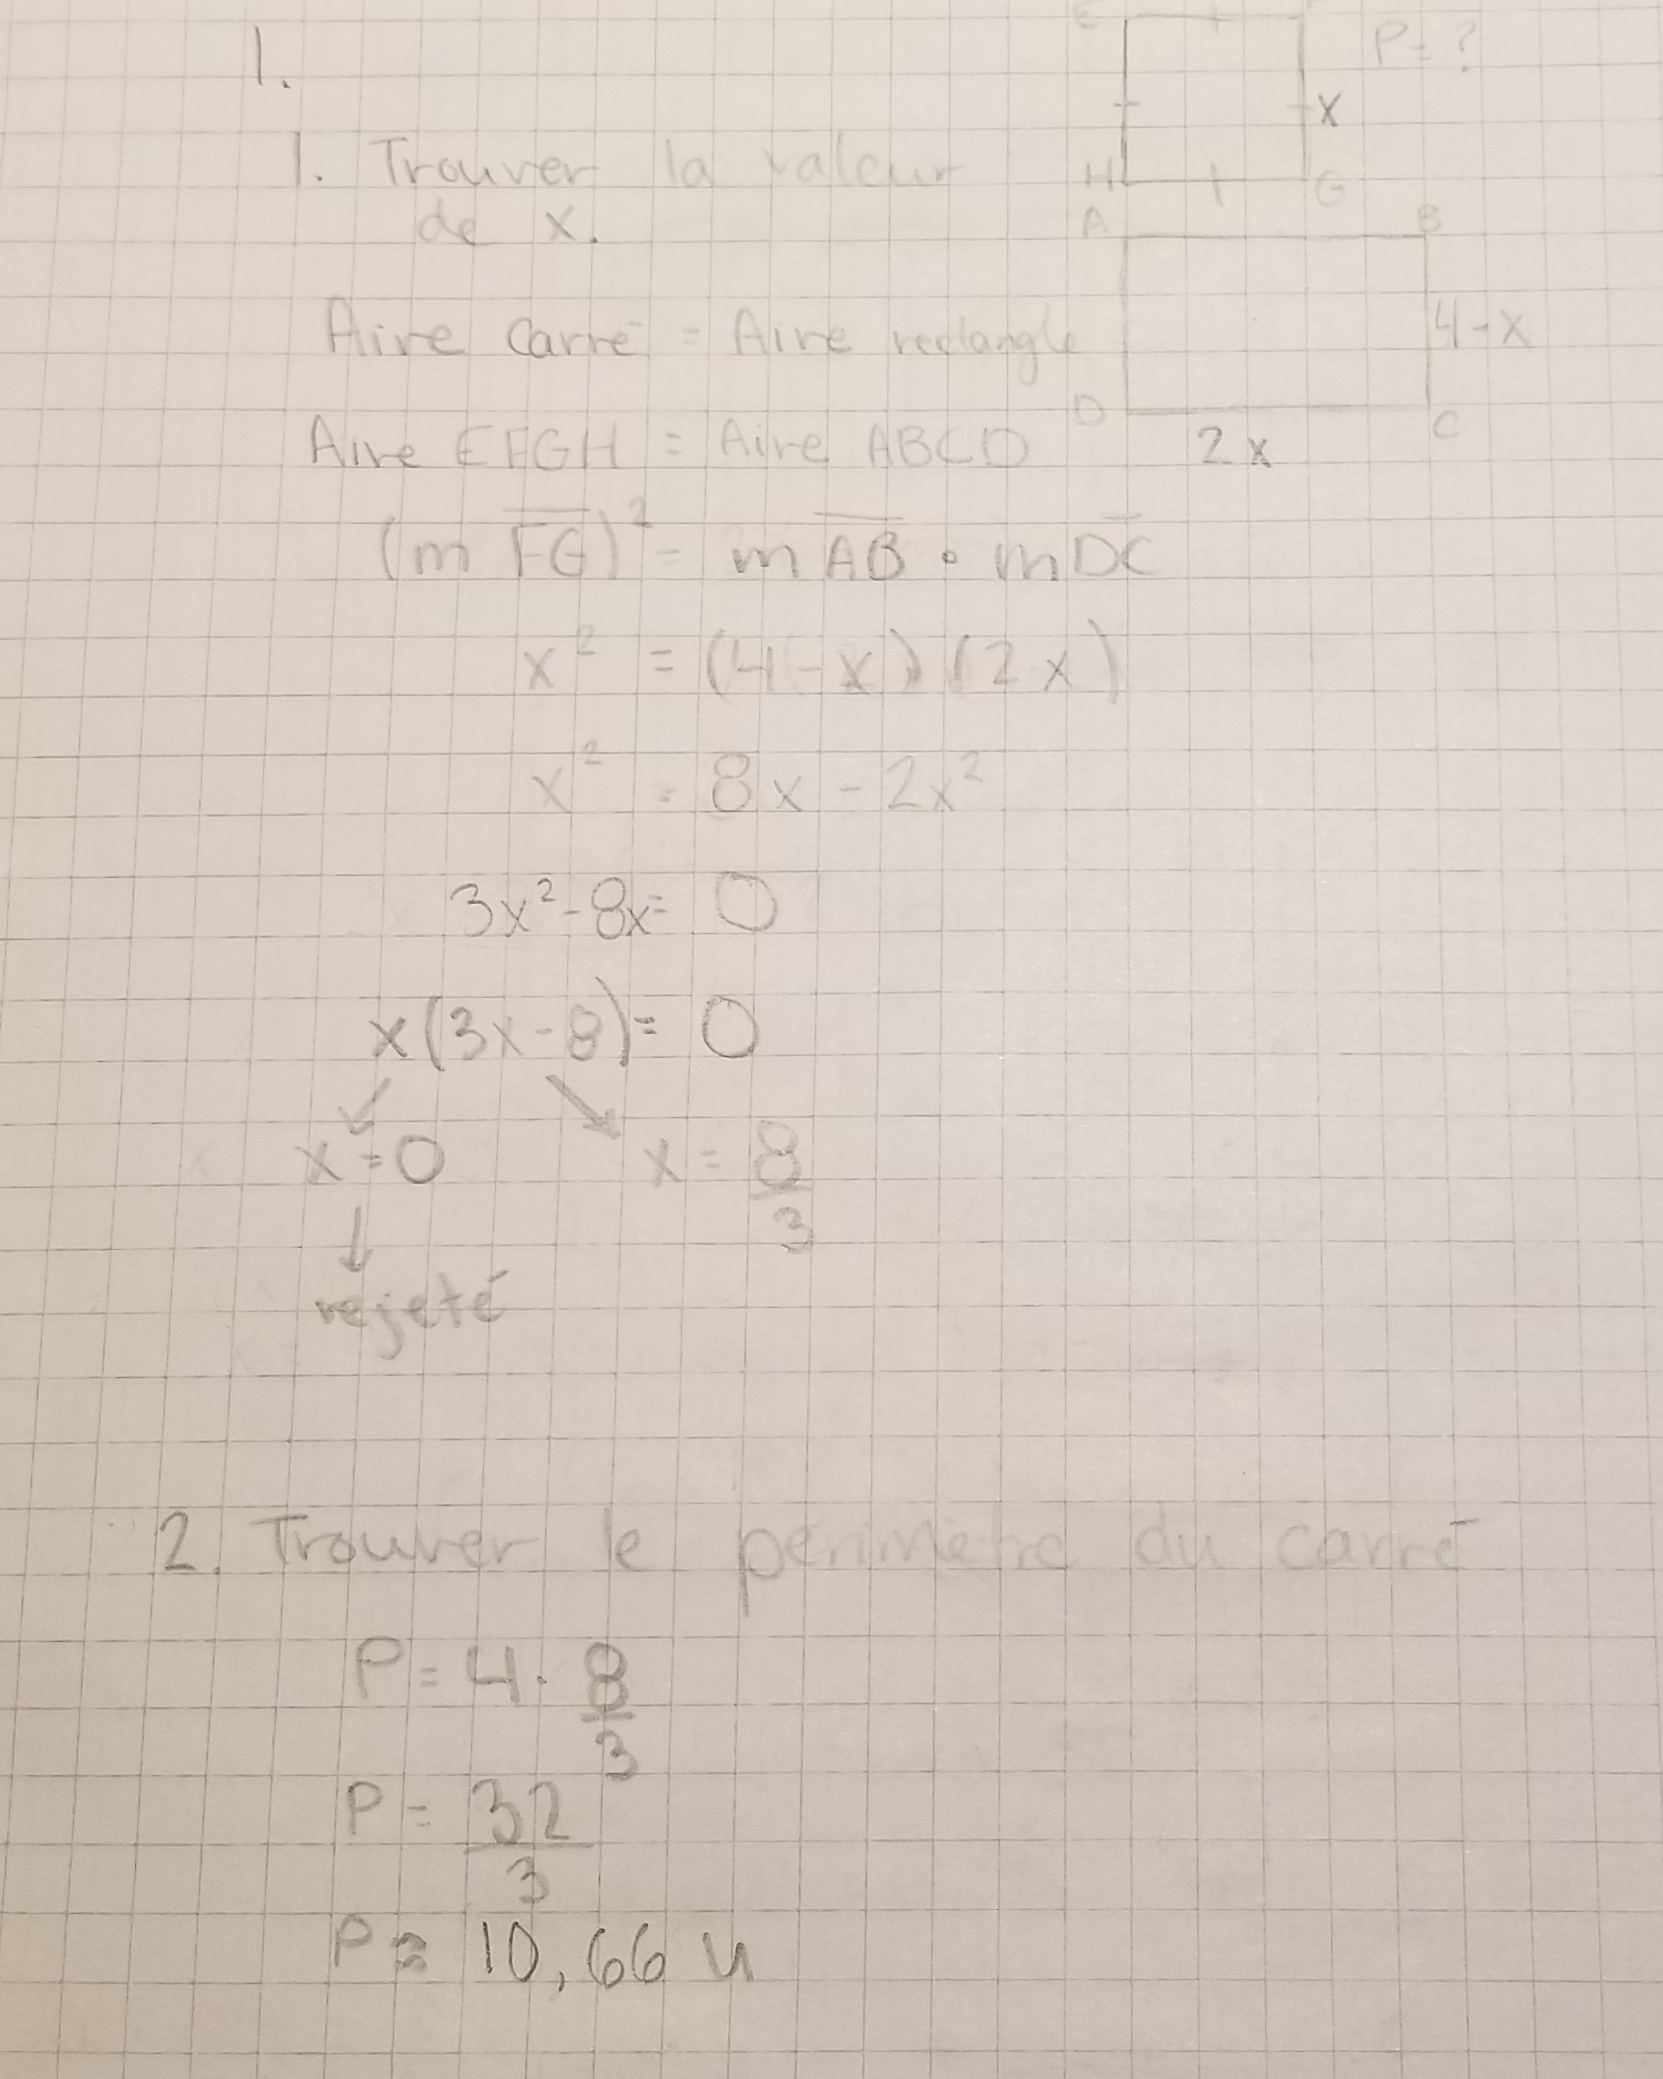 1.
E
P = ?
x
H G
1. Trouver la valeur
de x.
A B
4-x
D C
2x
Aire carré = Aire rectangle
Aire EFGH = Aire ABCD
(m F̅G̅)² = m A̅B̅ • m D̅C̅
x² = (4-x)(2x)
x² = 8x - 2x²
3x² - 8x = 0
x(3x - 8) = 0
x = 0 x = 8/3
rejeté
2. Trouver le périmètre du carré
P = 4 · 8/3
P = 32/3
P ≈ 10,66 u